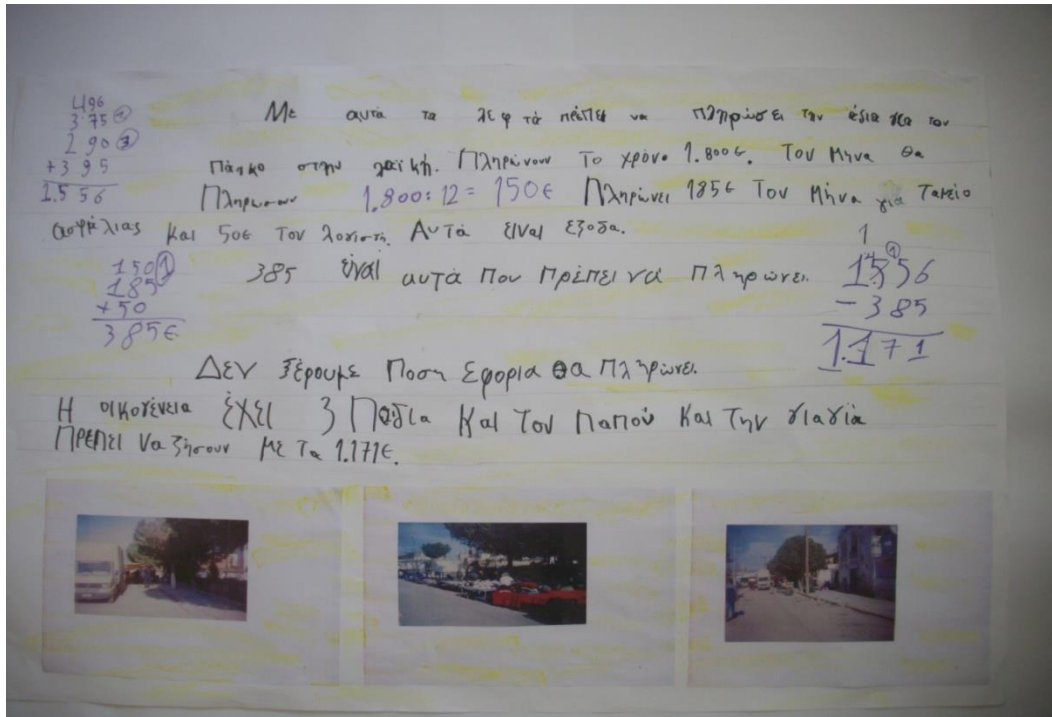 496
375
290
+395
1.556
Με αυτά τα λεφτά πρέπει να πληρώσει την άδια για τον
Πάγκο στην λαϊκή. Πληρώνουν Το χρόνο 1.800€. Τον Μηνα θα
Πληρωσουν 1.800:12=150€ Πληρώνει 185€ Τον Μήνα γιά Ταμείο
ασφάλιας και 50€ Τον λογιστή. Αυτά είναι έξοδα.
150
185
+50
385€
385 είναι αυτά που πρέπει νά Πληρώνει.
1556
-385
1.171
Δεν ξέρουμε Ποση Εφορια θα Πληρώνει.
Η οικογένεια έχει 3 Παιδια και Τον Παπού και Την γιαγιά
Πρέπει να ζήσουν με Τα 1.171€.